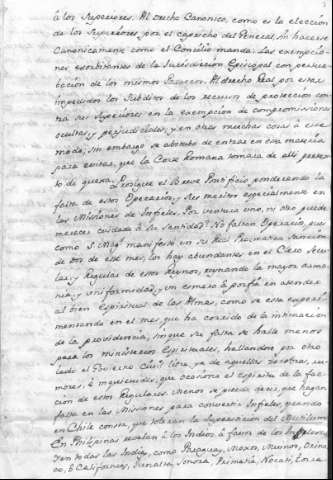 à los Superiores. Al drecho Canonico, como es la eleccion
de los Superiores por el capricho del General, sin hacerse
Canonicamente como el Concilio manda. Las exempcio-
nes exorbitantes de la Jurisdiccion Episcopal con
de los mismos Al drecho Real por estar
impedidos los Subditos de los recursos de proteccion con-
tra sus Superiores en la exempcion de compromissiones
ocultas y perjudiciales, y en otras muchas cosas à este
modo; Sin embargo se abstubo de entrar en esta materia
para evitar, que la Corte Romana tomara de alli pretex-
to de quexa. Prosigue el Breve Pontificio ponderando la
falta de estos Operarios, y ser mucho especialmente en
las Misiones de Infieles. Por ventura uno, ni otro puede
merecer cuidado à Su Santidad. No faltan Operarios, pues
como S. Mag.d manifestò en su Real Pracmatica Sancion
de dos de ese mes, los hay abundantes en el Clero Secu-
lar, y Regular de estos Reynos, reynando la mayor armo-
nia, y uniformidad, y un esmero à porfia en atender
al bien Espiritual de las Almas, como se està experi-
mentando en el mes que ha corrido de la intimacion
de la providencia, sin que su falta se halle menos
para los ministerios Espirituales, hallandose por otro
lado el Govierno Civil libre ya de aquellas zozobras, ru-
mores, è inquietudes, que ocasiona el espiritu de la fac-
cion de estos Regulares. Menos se puede decir, que hagan
falta en las Misiones para convertir Infieles, quando
en Chile consta, que toleran la Supersticion del Machitum
En Philipinas sublevan à los Indios à favor de los Ingleses
Y en todas las Indias, como Paraguay, Moxos, Mainas, Orino-
co, Californias, Cinaloa, Sonora, Pimeria, Nayari, Tarau-